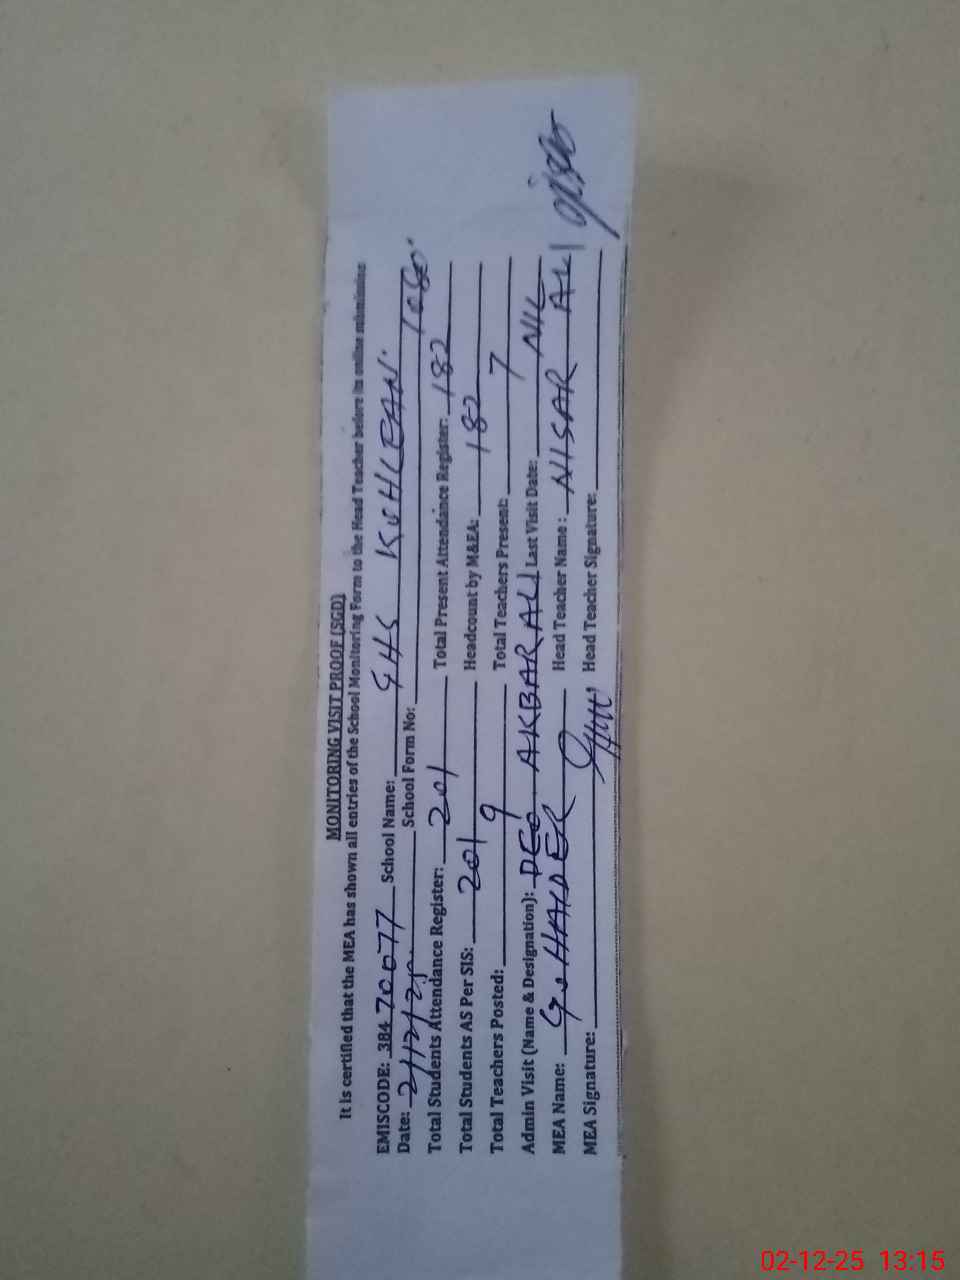 MONITORING VISIT PROOF (SGD)
It is certified that the MEA has shown all entries of the School Monitoring Form to the Head Teacher before its online submission
EMISCODE: 38470077 School Name: GHS KOHLEAN.
Date: 2/12/25. School Form No:
Total Students Attendance Register: 201 Total Present Attendance Register: 182
Total Students AS Per SIS: 201 Headcount by M&EA: 182
Total Teachers Posted: 9 Total Teachers Present: 7
Admin Visit (Name & Designation): DEO AKBAR ALI Last Visit Date: NIL
MEA Name: G. HAIDER Head Teacher Name: NISAR ALI
MEA Signature: Head Teacher Signature:
02-12-25 13:15